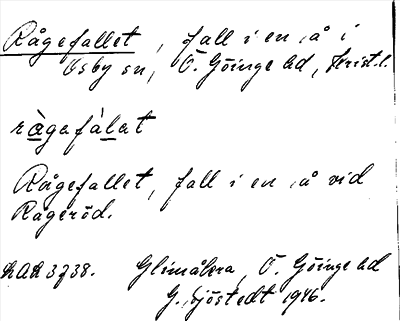 Rågefallet, fall i en å i
Osby sn, Ö. Göinge hd, Krist. l.
ràgefàlat
Rågefallet, fall i en å vid
Rågeröd.
Glimåkra, Ö. Göinge hd
G. Sjöstedt 1946.